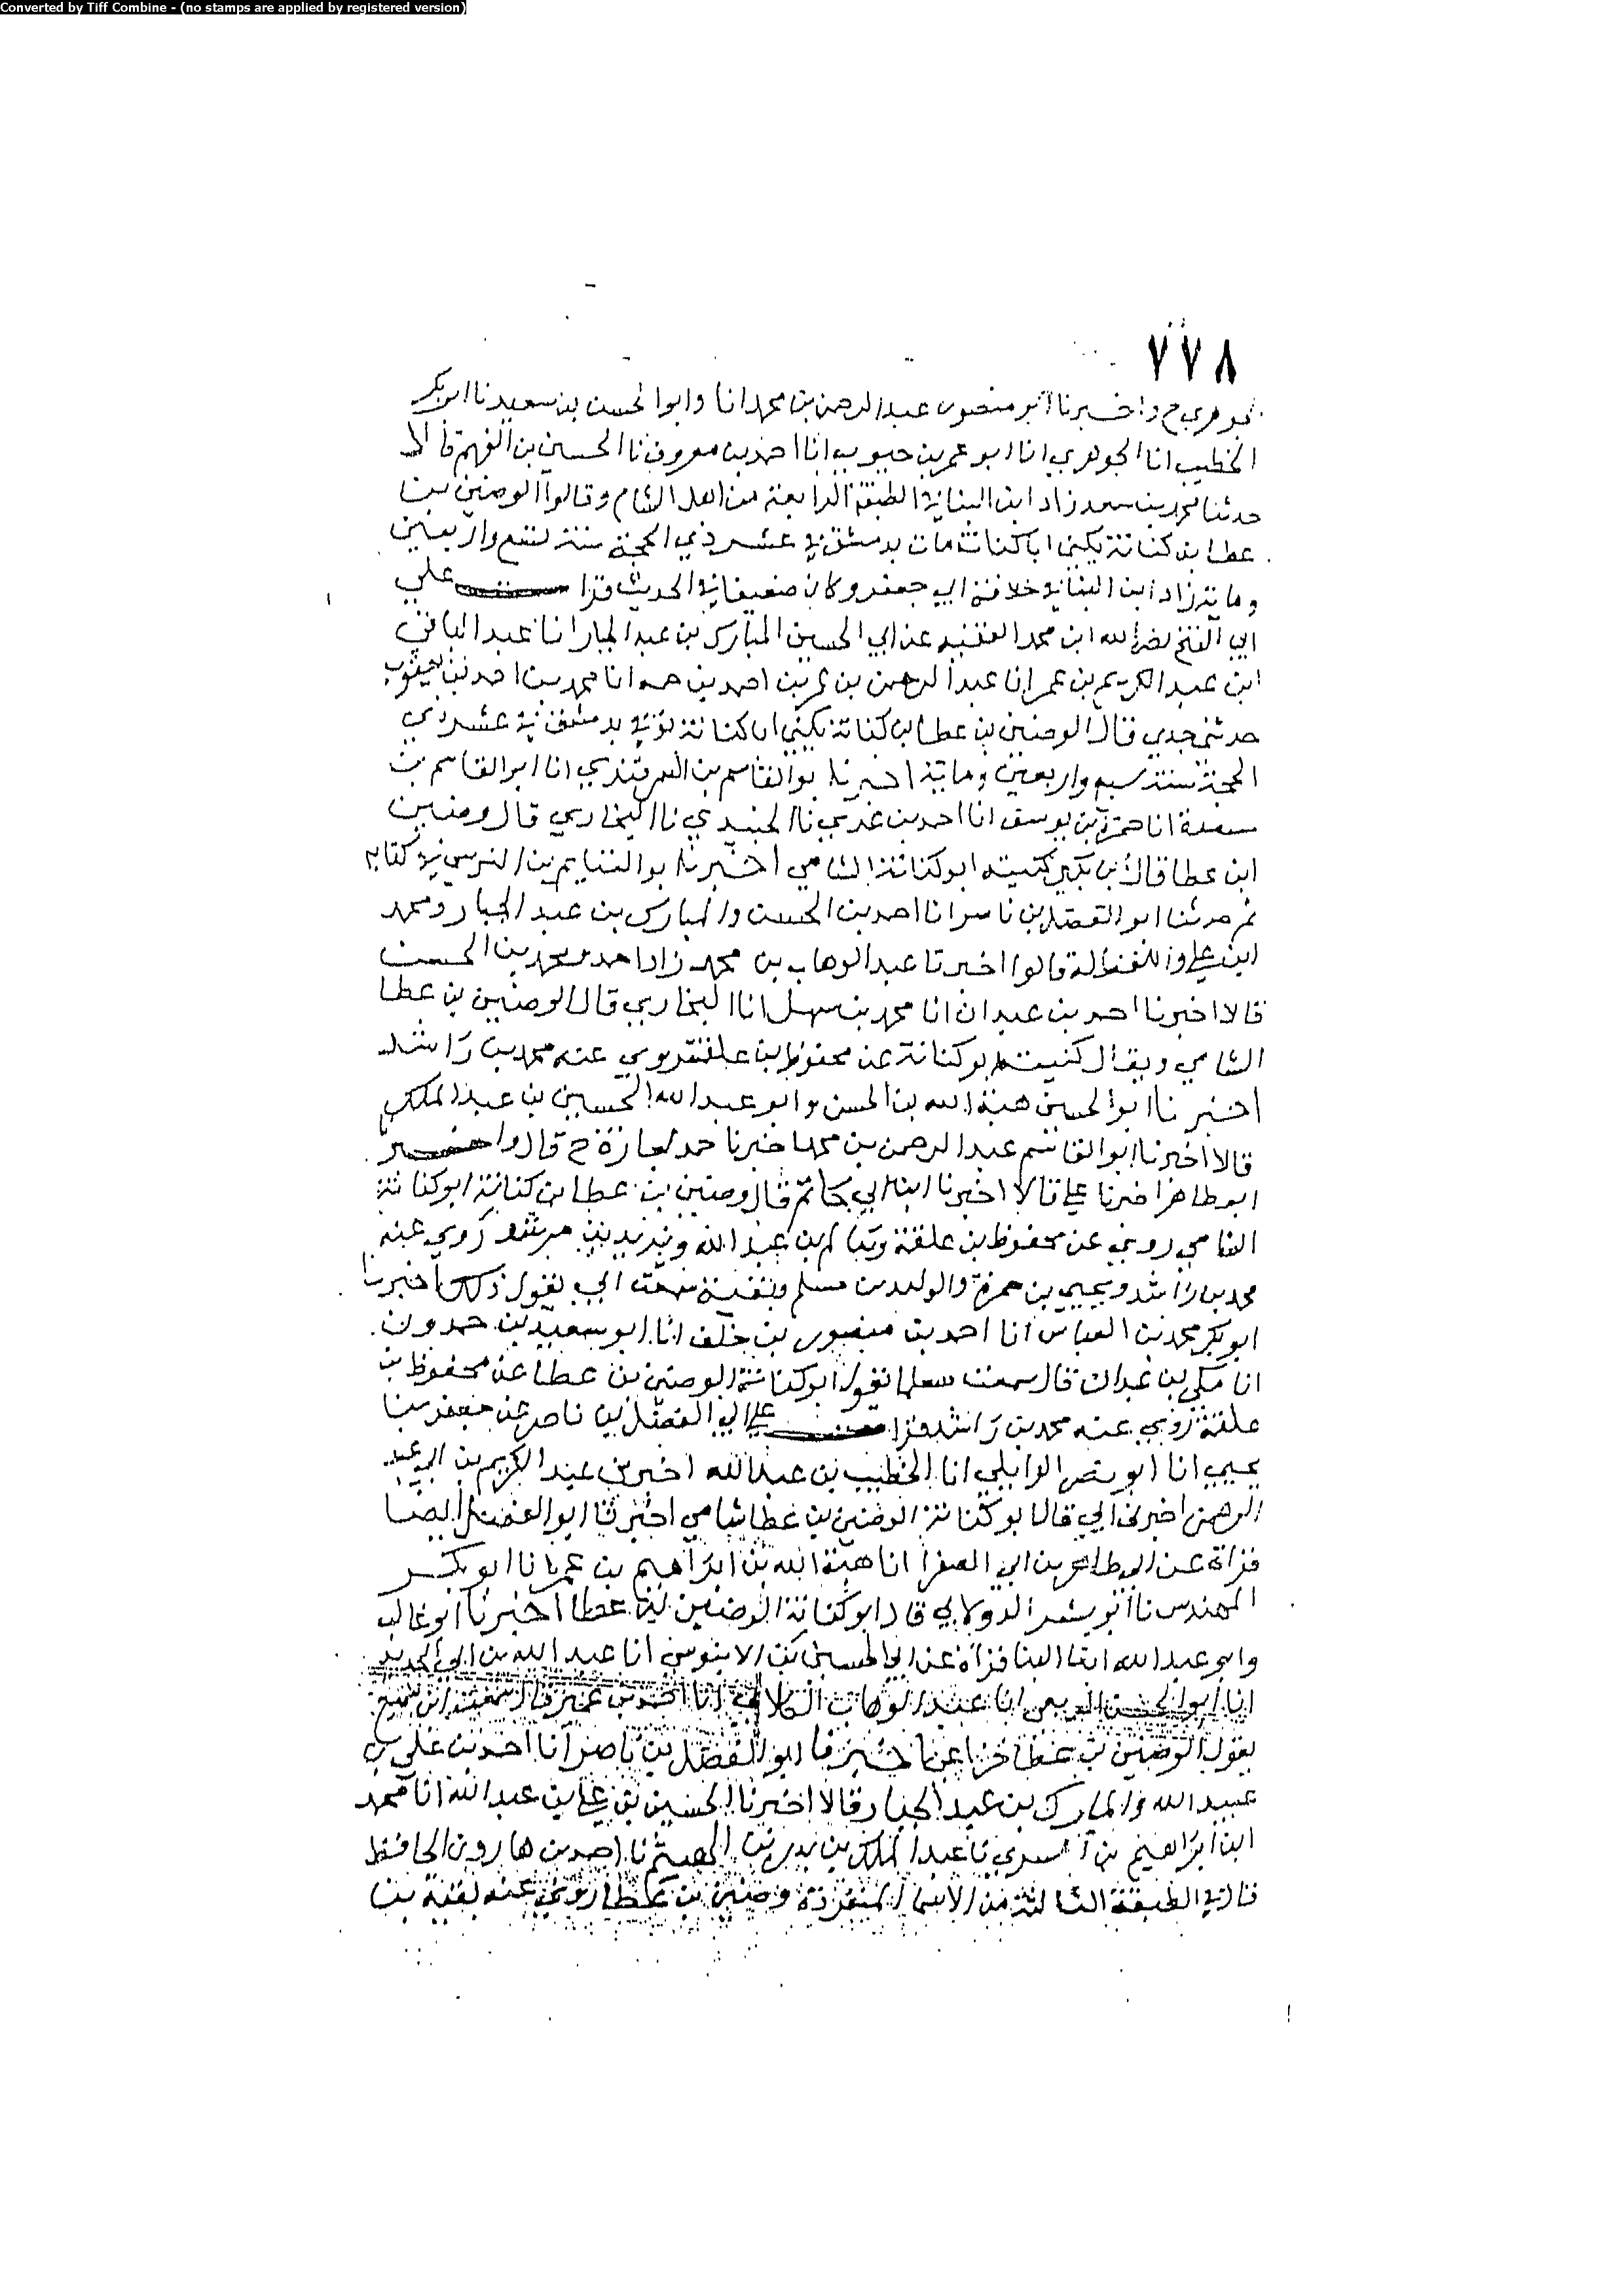 Converted by Tiff Combine - (no stamps are applied by registered version)
٧٧٨
الجوهري ح واخبرنا ابو منصور عبد الرحمن بن محمد انا وابو الحسن بن سعيد نا ابو بكر
الخطيب انا الجوهري انا ابو عمر بن حيويه انا احمد بن معروف نا الحسين بن الفهم قالا
حدثنا محمد بن سعد زاد ابن البنا في الطبقة الرابعة من اهل الشام وقالوا الوضين بن
عطا بن كنانة يكنى ابا كنانة مات بدمشق في عشر ذي الحجة سنة تسع واربعين
وماية زاد ابن البنا في خلافة ابي جعفر وكان ضعيفا في الحديث قرا علي
ابي الفتح نصر الله ابن محمد الفقيه عن ابي الحسين المبارك بن عبد الجبار انا عبد الباقي
ابن عبد الكريم بن عمر انا عبد الرحمن بن عمر بن احمد بن حمه انا محمد بن احمد بن يعقوب
حدثني جدي قال الوضين بن عطا بن كنانة يكنى ابا كنانة توفي بدمشق في عشر ذي
الحجة سنة سبع واربعين وماية اخبرنا بو القاسم بن السمرقندي انا ابو القاسم بن
مسعدة انا حمزة بن يوسف انا احمد بن عدي نا الجنيدي نا البخاري قال وضين
ابن عطا قال ابن بكير كنيته ابو كنانة الشامي اخبرنا بو الغنايم بن النرسي في كتابه
ثم حدثنا ابو الفضل بن ناصر انا احمد بن الحسن والمبارك بن عبد الجبار ومحمد
ابن علي واللفظ له قالوا اخبرنا عبد الوهاب بن محمد زاد احمد ومحمد بن الحسن
قالا اخبرنا احمد بن عبدان انا محمد بن سهل انا البخاري قال لوضين بن عطا
الشامي ويقال كنيته ابو كنانة عن محفوظ بن علقمة روى عنه محمد بن راشد
اخبرنا ابو الحسين هبة الله بن الحسن وابو عبد الله الحسين بن عبد الملك
قالا اخبرنا ابو القاسم عبد الرحمن بن محمد اخبرنا حمد اجازة ح قال واخبرنا
ابو طاهر اخبرنا علي قالا اخبرنا ابن ابي حاتم قال وضين بن عطا بن كنانة ابو كنانة
الشامي روى عن محفوظ بن علقمة وسالم بن عبد الله ويزيد بن مرثد روى عنه
محمد بن راشد ويحيى بن حمزة والوليد بن مسلم وبقية سمعت ابي يقول ذلك اخبرنا
ابو بكر محمد بن العباس انا احمد بن منصور بن خلف انا ابو سعيد بن حمدون
انا مكي بن عبدان قال سمعت مسلما يقول ابو كنانة الوضين بن عطا عن محفوظ بن
علقمة روى عنه محمد بن راشد قرا علي ابي الفضل بن ناصر عن جعفر بن
يحيى انا ابو نصر الوايلي انا الخطيب بن عبد الله اخبرني عبد الكريم بن ابي عبد
الرحمن اخبرني ابي قال ابو كنانة الوضين بن عطا شامي اخبرنا ابو الفضل ايضا
قراة عن ابي طاهر بن ابي الصقر انا هبة الله بن ابراهيم بن عمر نا ابو بكر
المهندس نا ابو بشر الدولابي قال ابو كنانة الوضين بن عطا اخبرنا ابو غالب
وابو عبد الله ابنا البنا قراة عن ابي الحسين بن الابنوسي انا عبد الله بن ابي الحديد
انا ابو الحسن الربعي انا عبد الوهاب الكلابي انا احمد بن عمير قال سمعت ابن سميع
يقول الوضين بن عطا خزاعي اخبرنا ابو الفضل بن ناصر انا احمد بن علي بن
عبيد الله والمبارك بن عبد الجبار قالا اخبرنا الحسين بن علي بن عبد الله انا محمد
ابن ابراهيم بن السري نا عبد الملك بن بدر بن الهيثم نا احمد بن هارون الحافظ
قال في الطبقة الثالثة من الاسما المنفردة وضين بن عطا روى عنه بقية بن